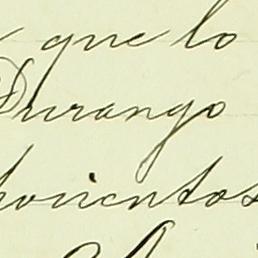 que lo
Durango
novientos